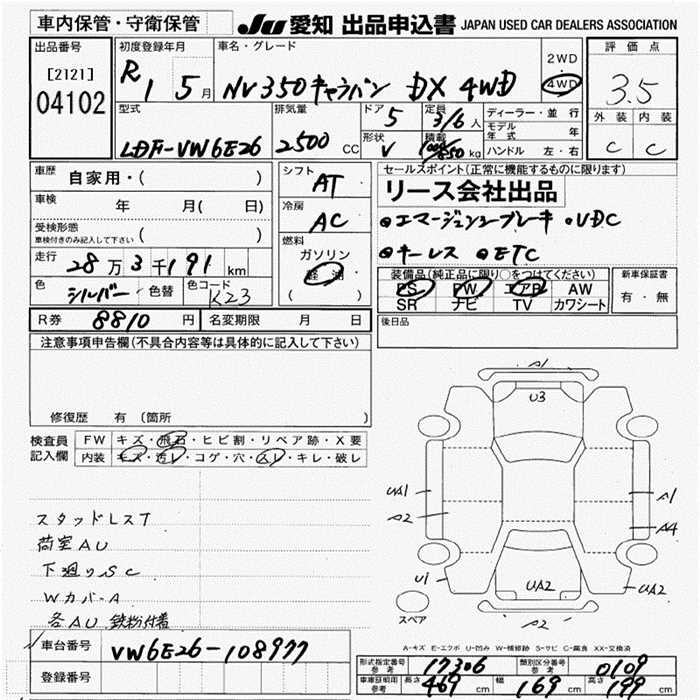 車内保管・守衛保管 JU 愛知 出品申込書 JAPAN USED CAR DEALERS ASSOCIATION
出品番号 初度登録年月 車名・グレード 評価点
[2121] 04102
R1 5月 NV350キャラバン DX 4WD 2WD 4WD 3.5
型式 排気量 ドア 定員 ディーラー・並行 外装 内装
LDF-VW6E26 2500 CC 5 3/6人 モデル年式 年 C C
形状 V 積載 1000/850 kg ハンドル 左・右
車歴 自家用・( ) シフト AT セールスポイント(正常に機能するものに限ります)
リース会社出品
車検 年 月( 日) 冷房 AC
エマージェンシーブレーキ VDC
受検形態 ( )
車検付きのみ記入して下さい
キーレス ETC
走行 28万3千191km 燃料 ガソリン 軽油 ( )
装備品(純正品に限り○をつけてください) 新車保証書
PS PW エアB AW 有・無
SR ナビ TV カワシート
色 シルバー 色替 色コード K23
R券 8810円 名変期限 月 日 後日品
注意事項申告欄(不具合内容等は具体的に記入して下さい)
修復歴 有(箇所 )
検査員記入欄 FW キズ・飛石・ヒビ割・リペア跡・X要
内装 キズ・汚レ・コゲ・穴・スレ・キレ・破レ
A1
U3
UA1
A2
A1
A4
U1
UA2
UA2
A2
スペア
スタッドレスT
荷室AU
下廻りSC
Wカバー A
各AU 鉄粉付着
A-キズ E-エクボ U-凹み W-補修跡 S-サビ C-腐食 XX-交換済
車台番号 VW6E26-108977
登録番号
形式指定番号 参考 17306 類別区分番号 参考 0109
車庫証明用 参考 長さ 469 cm 幅 169 cm 高さ 199 cm